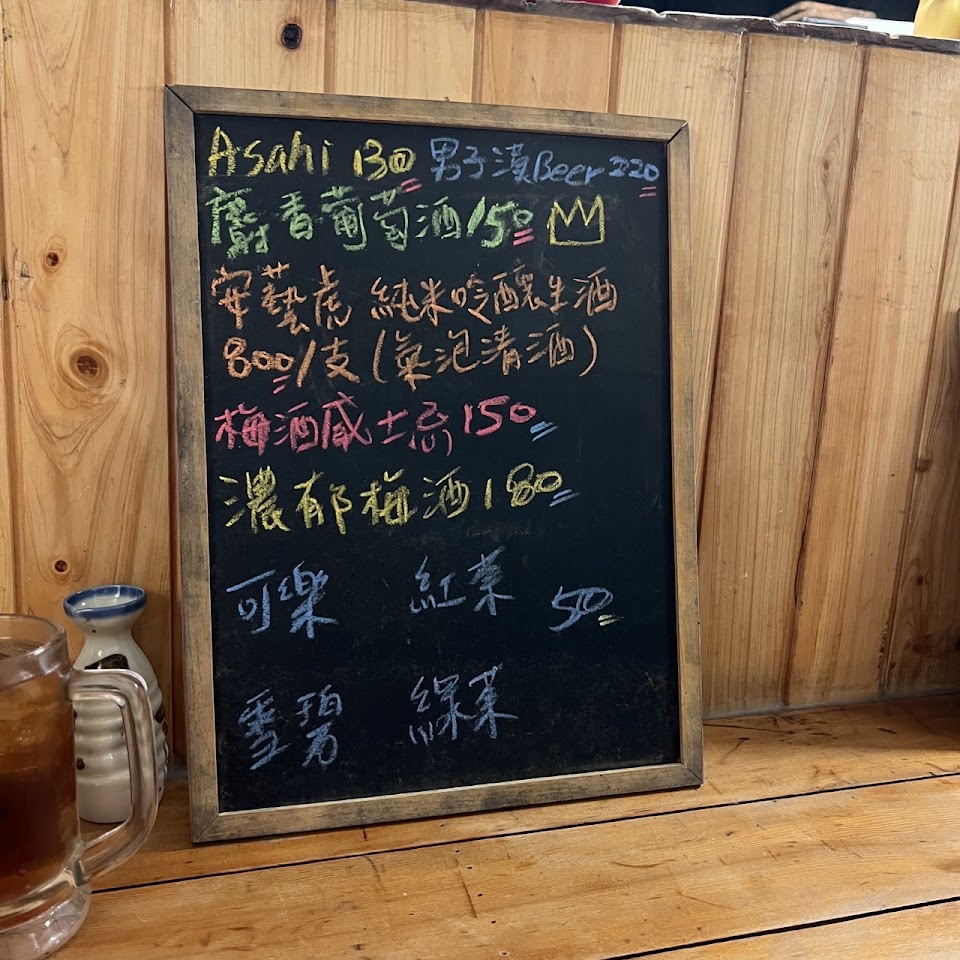 Asahi 130 男子漢Beer 220
麝香葡萄酒150
安藝虎 純米吟釀生酒
800/支(氣泡清酒)
梅酒威士忌150
濃郁梅酒180
可樂 紅茶 50
雪碧 綠茶